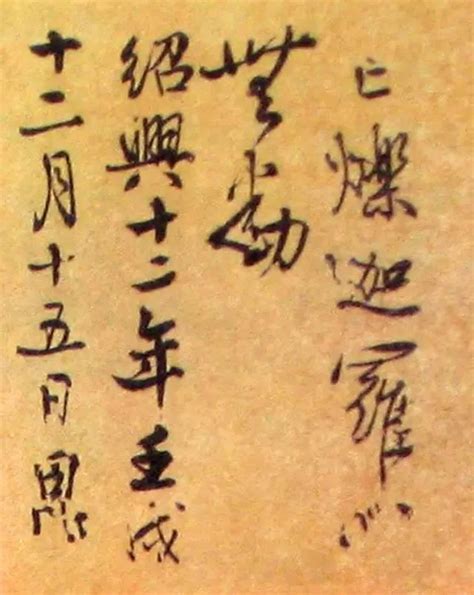 亡爍迦羅心
無動
紹興十二年壬戌
十二月十五日